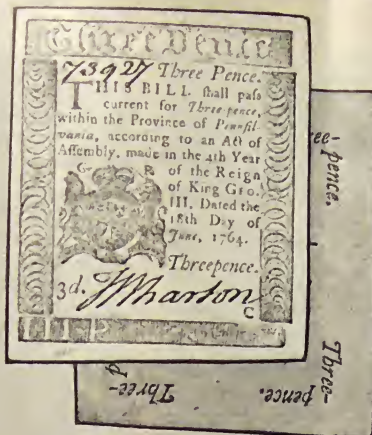 Three Pence
73927 Three Pence.
THIS BILL shall pass
current for Three-pence,
within the Province of Pennsil-
vania, according to an Act of
Assembly, made in the 4th Year
G R of the Reign
of King GEO.
III. Dated the
18th Day of
June, 1764.
Threepence.
3d. Wharton
C
ee-pence.
Three-pence.
Three-